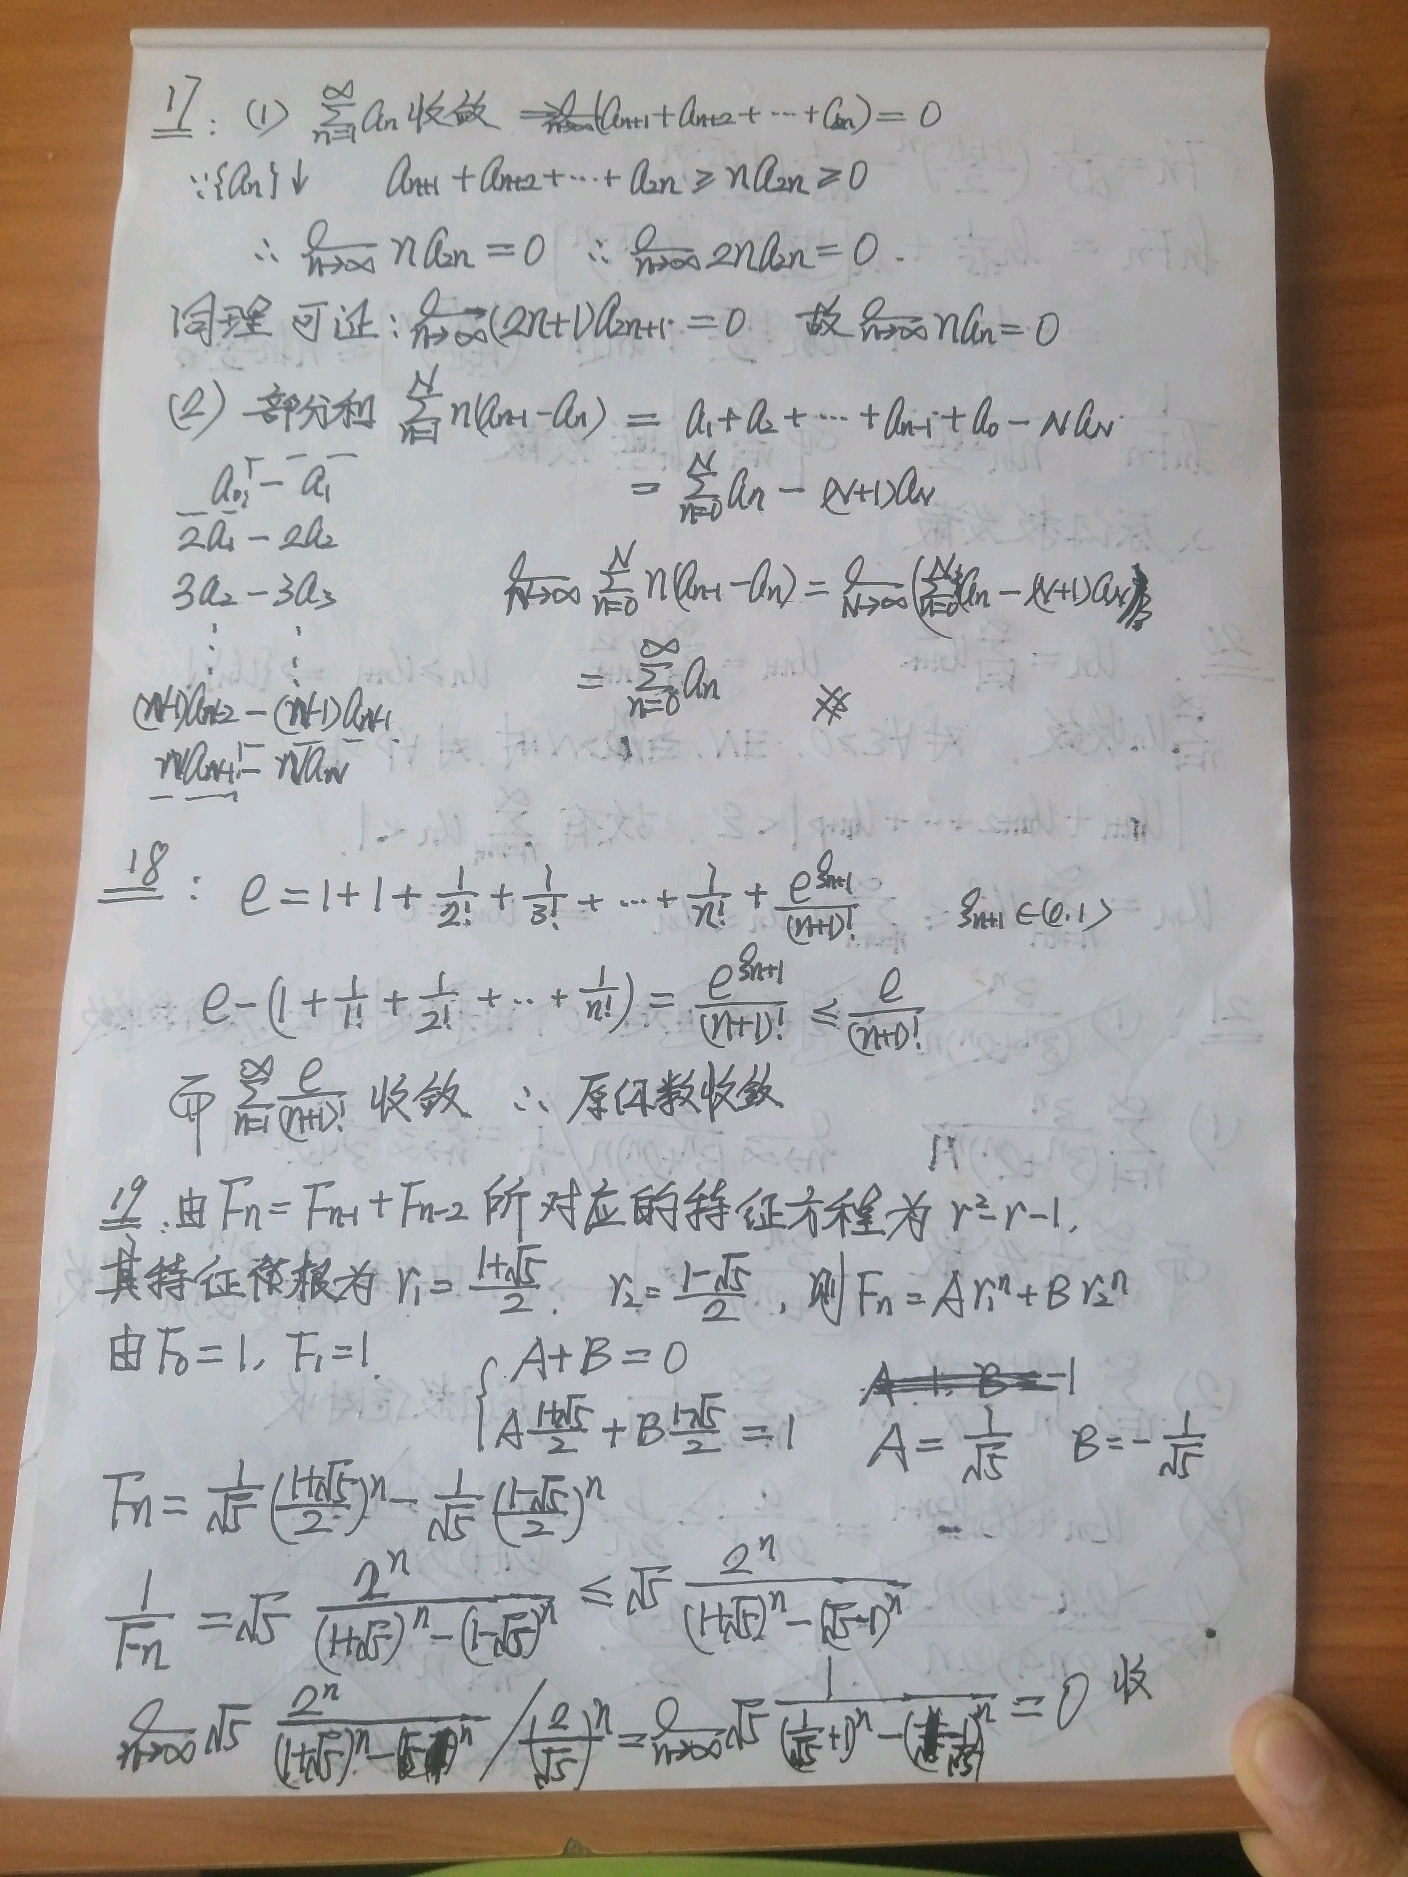 17: (1) ∑_{n=1}^{∞} aₙ 收敛 ⇒ lim_{n→∞}(aₙ₊₁+aₙ₊₂+⋯+a₂ₙ)=0
∵{aₙ}↓ aₙ₊₁+aₙ₊₂+⋯+a₂ₙ≥na₂ₙ≥0
∴ lim_{n→∞} na₂ₙ=0 ∴ lim_{n→∞} 2na₂ₙ=0.
同理可证: lim_{n→∞}(2n+1)a₂ₙ₊₁=0 故 lim_{n→∞} naₙ=0
(2) 部分和 ∑_{n=1}^{N} n(aₙ₋₁-aₙ) = a₁+a₂+⋯+aₙ₋₁+a₀-Na_N
a₀-a₁
= ∑_{n=0}^{N} aₙ-(N+1)a_N
2a₁-2a₂
3a₂-3a₃
lim_{N→∞} ∑_{n=0}^{N} n(aₙ₋₁-aₙ) = lim_{N→∞}(∑_{n=0}^{N} aₙ-(N+1)a_N)
⋮ ⋮
= ∑_{n=0}^{∞} aₙ
18: e=1+1+1/2!+1/3!+⋯+1/n!+e^{ξₙ₊₁}/(n+1)! ξₙ₊₁∈(0,1)
e-(1+1/1!+1/2!+⋯+1/n!)=e^{ξₙ₊₁}/(n+1)!≤e/(n+1)!
而 ∑_{n=1}^{∞} e/(n+1)! 收敛 ∴ 原级数收敛
19. 由Fₙ=Fₙ₋₁+Fₙ₋₂所对应的特征方程为 r²=r-1,
其特征根为 r₁=(1+√5)/2. r₂=(1-√5)/2, 则Fₙ=Ar₁ⁿ+Br₂ⁿ
由F₀=1, F₁=1. { A+B=0
A(1+√5)/2+B(1-√5)/2=1 A=1/√5 B=-1/√5
Fₙ=1/√5((1+√5)/2)ⁿ-1/√5((1-√5)/2)ⁿ
1/Fₙ=√5 2ⁿ/((1+√5)ⁿ-(1-√5)ⁿ)≤√5 2ⁿ/((1+√5)ⁿ-(√5-1)ⁿ)